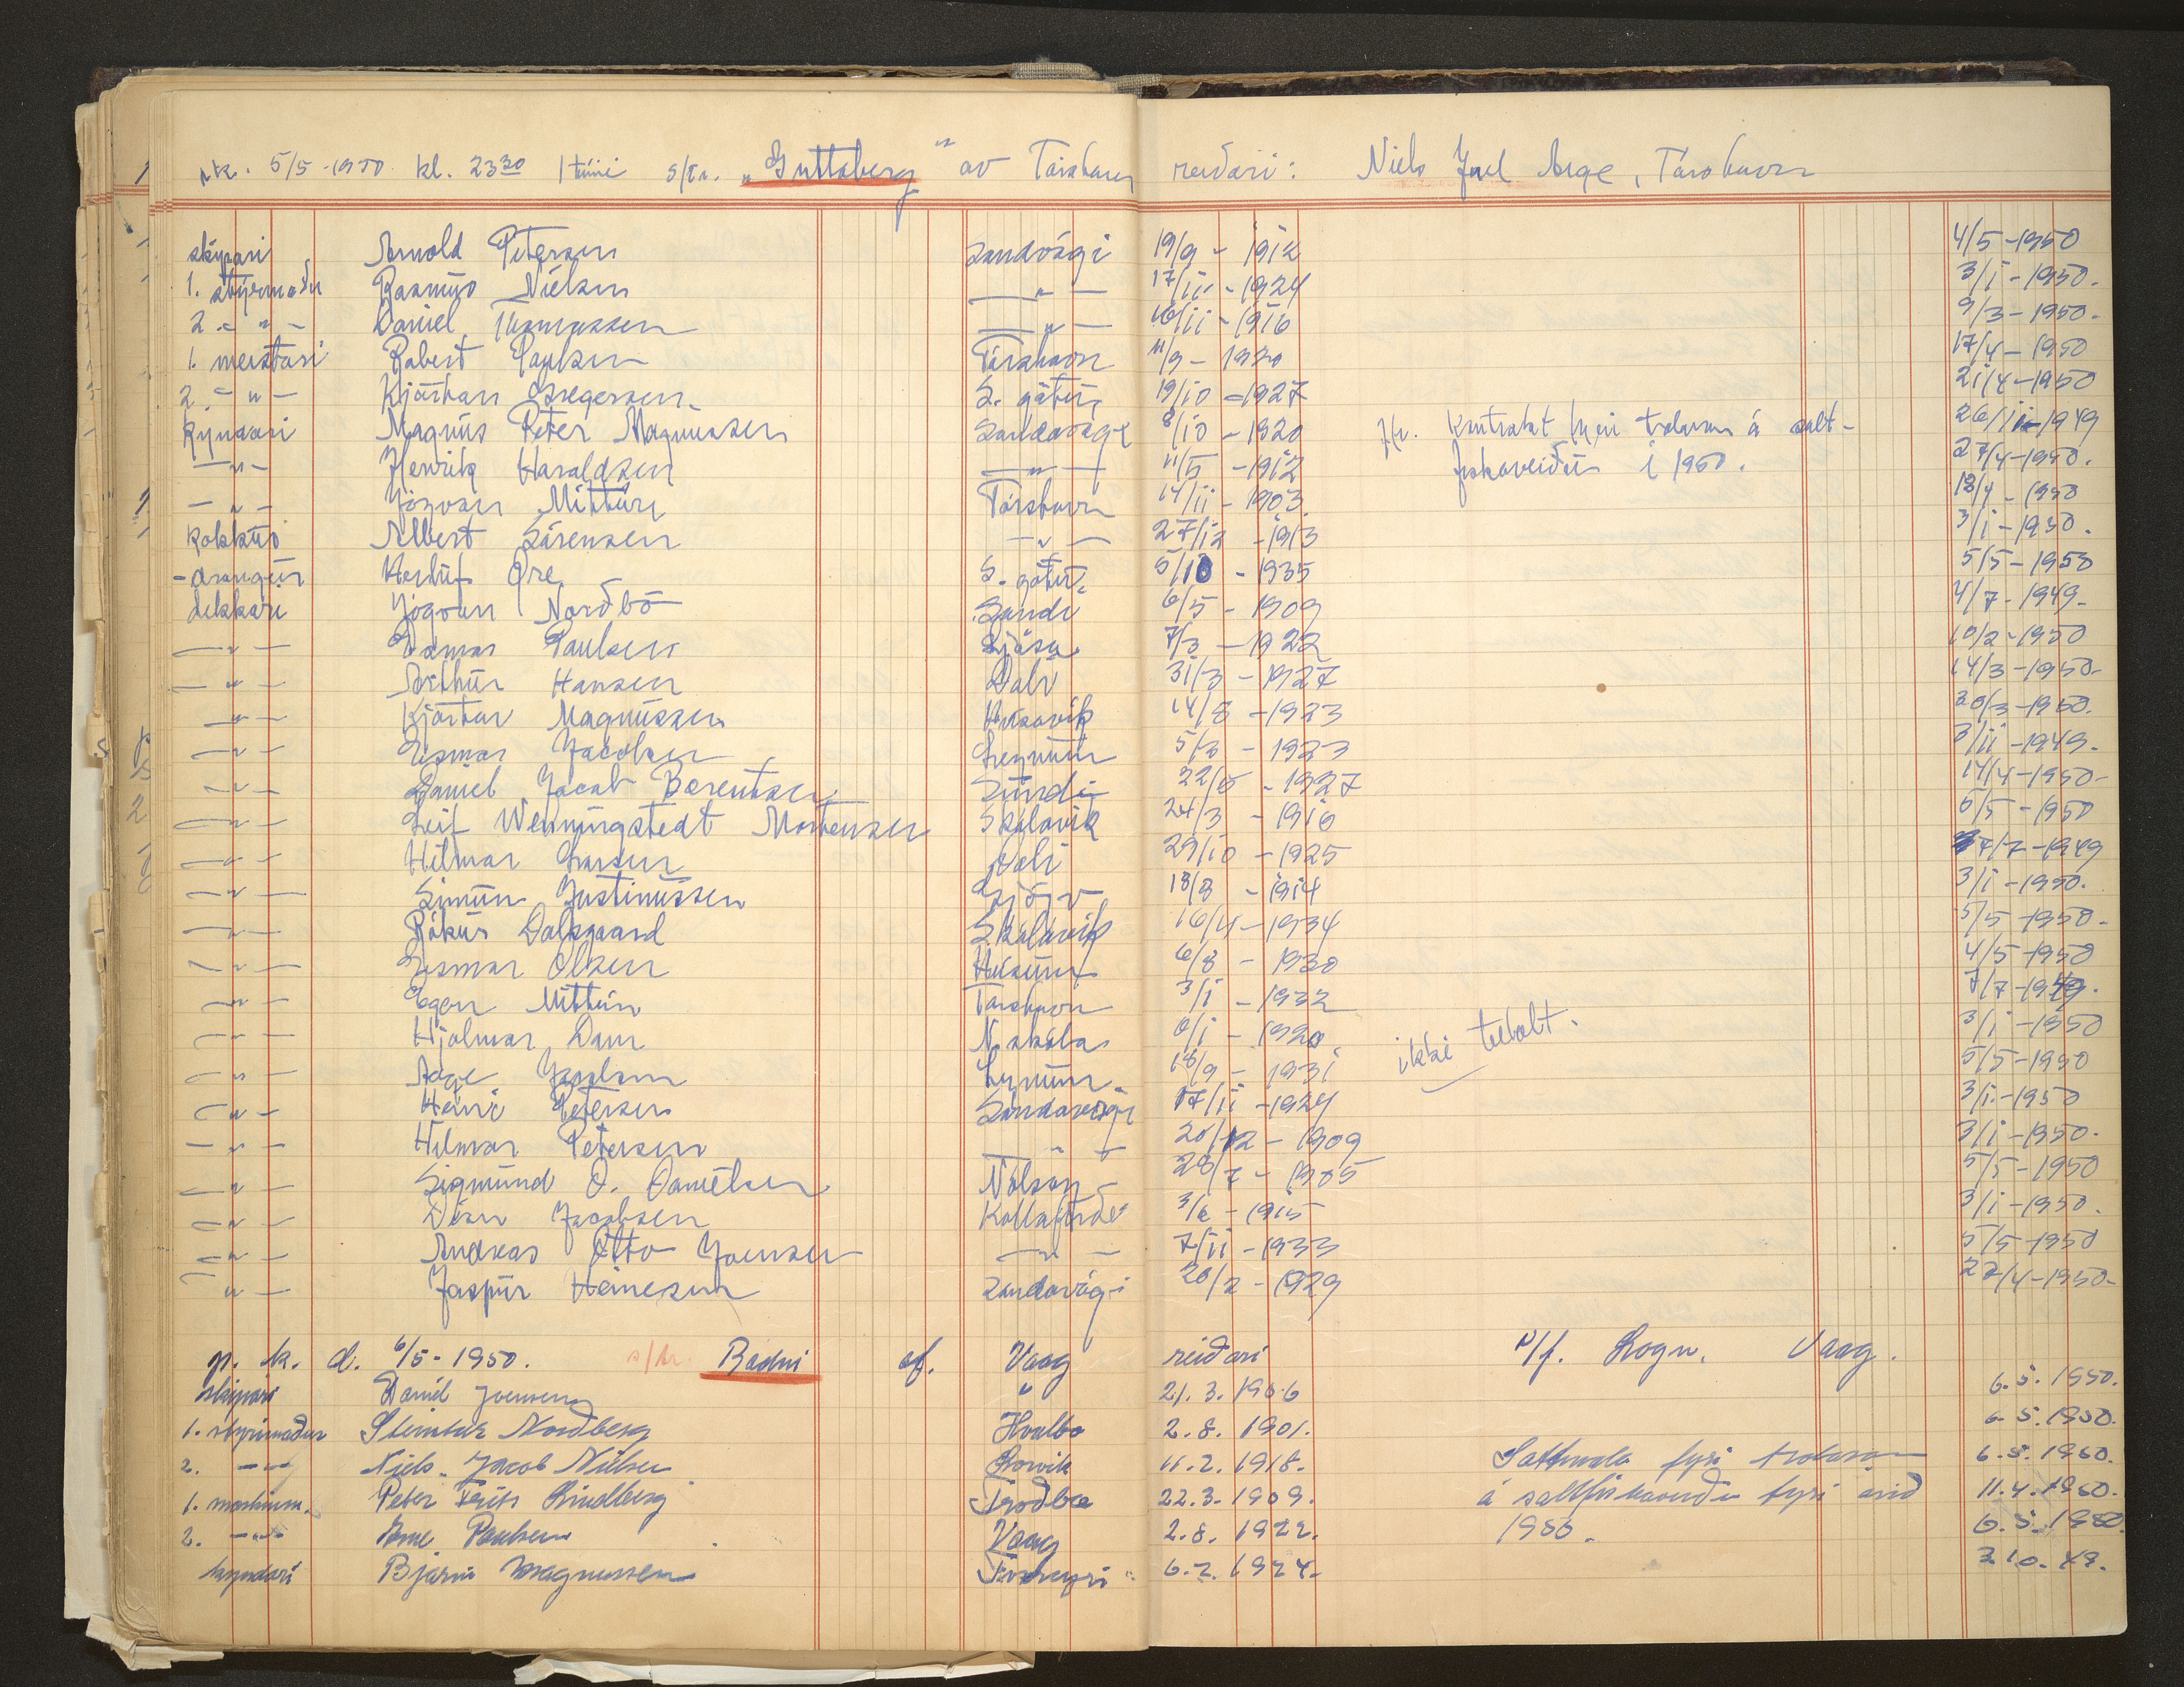 5/5-1950 kl. 23 30 s/tr. „Guttaberg" av Tórshavn reiðari: Niels Juel Arge, Tórshavn
skipari Arnold Petersen Sandvági 19/9 - 1912 4/5-1950
1. stýrmaður Rasmus Nielsen —"— 17/11 - 1924 3/1-1950.
2. —"— Daniel Thomassen —"— 16/11 - 1916 9/3-1950.
1. meistari Robert Poulsen Tórshavn 11/9 - 1920 17/4-1950
2. —"— Kjartan Gregersen S. gøtu 19/10 - 1927 21/4-1950
Kyndari Magnus Peter Magnussen Sandavági 8/10 - 1920 Hr. kontrakt trolarum á salt- 26/11-1949
—"— Henrik Haraldsen —"— 11/5 - 1912 fiskaveiðu í 1950. 27/4-1950.
—"— Jógvan Mittún Tórshavn 14/11 - 1903. 18/4-1950
Kokkur Albert Sørensen —"— 27/12 - 1913 3/1-1950.
-drongur Herluf Øre S. gøtu. 5/10 - 1935 5/5-1950
dekkari Jógvan Norðbø Sandi 6/5 - 1909 4/7-1949.
—"— Poulsen 7/3 - 1922 10/2-1950
—"— Arthur Hansen Dali 31/3 - 1927 14/3-1950.
—"— Kjartan Magnussen Húsavík 14/8 - 1923 30/3-1950.
—"— Jacobsen Leynum 5/3 - 1923 3/11-1949.
—"— Daniel Jacob Berentsen Sundi 22/5 - 1927 14/4-1950-
—"— Leif Wenningstedt Mortensen Skálavík 24/3 - 1916 5/5-1950
—"— Hilmar Larsen Dali 29/10 - 1925 7/7-1949
—"— Simun Justinussen Gjógv 18/8 - 1914 3/1-1950.
—"— Rókur Dalsgaard Skálavík 16/4 - 1934 5/5-1950.
—"— Olsen Húsum 6/8 - 1930 4/5-1950
—"— Egon Mittún Tórshavn 3/1 - 1932 7/7-1949.
—"— Hjalmar Dam N. skála 6/1 - 1920. ikki 3/1-1950
—"— Aage Jacobsen Leynum. 18/9 - 1931 5/5-1950
—"— Heini Petersen Sandavági 17/11 - 1924 3/1-1950
—"— Hilmar Petersen —"— 20/12 - 1909 3/1-1950.
—"— Sigmund O. Danielsen Nólsoy 28/7 - 1905 5/5-1950
—"— Jacobsen Kollafirði 3/6 - 1915 3/1-1950.
—"— Andreas Otto Joensen —"— 7/11 - 1933 5/5-1950
—"— Jaspur Heinesen Sandavági 20/2 - 1929 27/4-1950-
p. k. d. 6/5-1950. s/tr. Rodni af. Vaag reiðari P/f. Rogn. Vaag.
skipari Daniel Joensen " 21.3.1906 6.5.1950.
1. stýrimaður Steintór Nordberg Hvalba 2.8.1901. 6.5.1950.
2. —"— Niels Jacob Nielsen Porvik 11.2.1918. Sáttmála fyri trolarar 6.5.1950.
1. maskinm. Peter Frits Lindberg Froðba 22.3.1909. á saltfiskaveiðu fyri árið 11.4.1950.
2. —"— Arne Poulsen Vaag 2.8.1922. 1950. 6.5.1950.
kyndari Bjarni Magnussen 6.2.1924. 3 10.49.